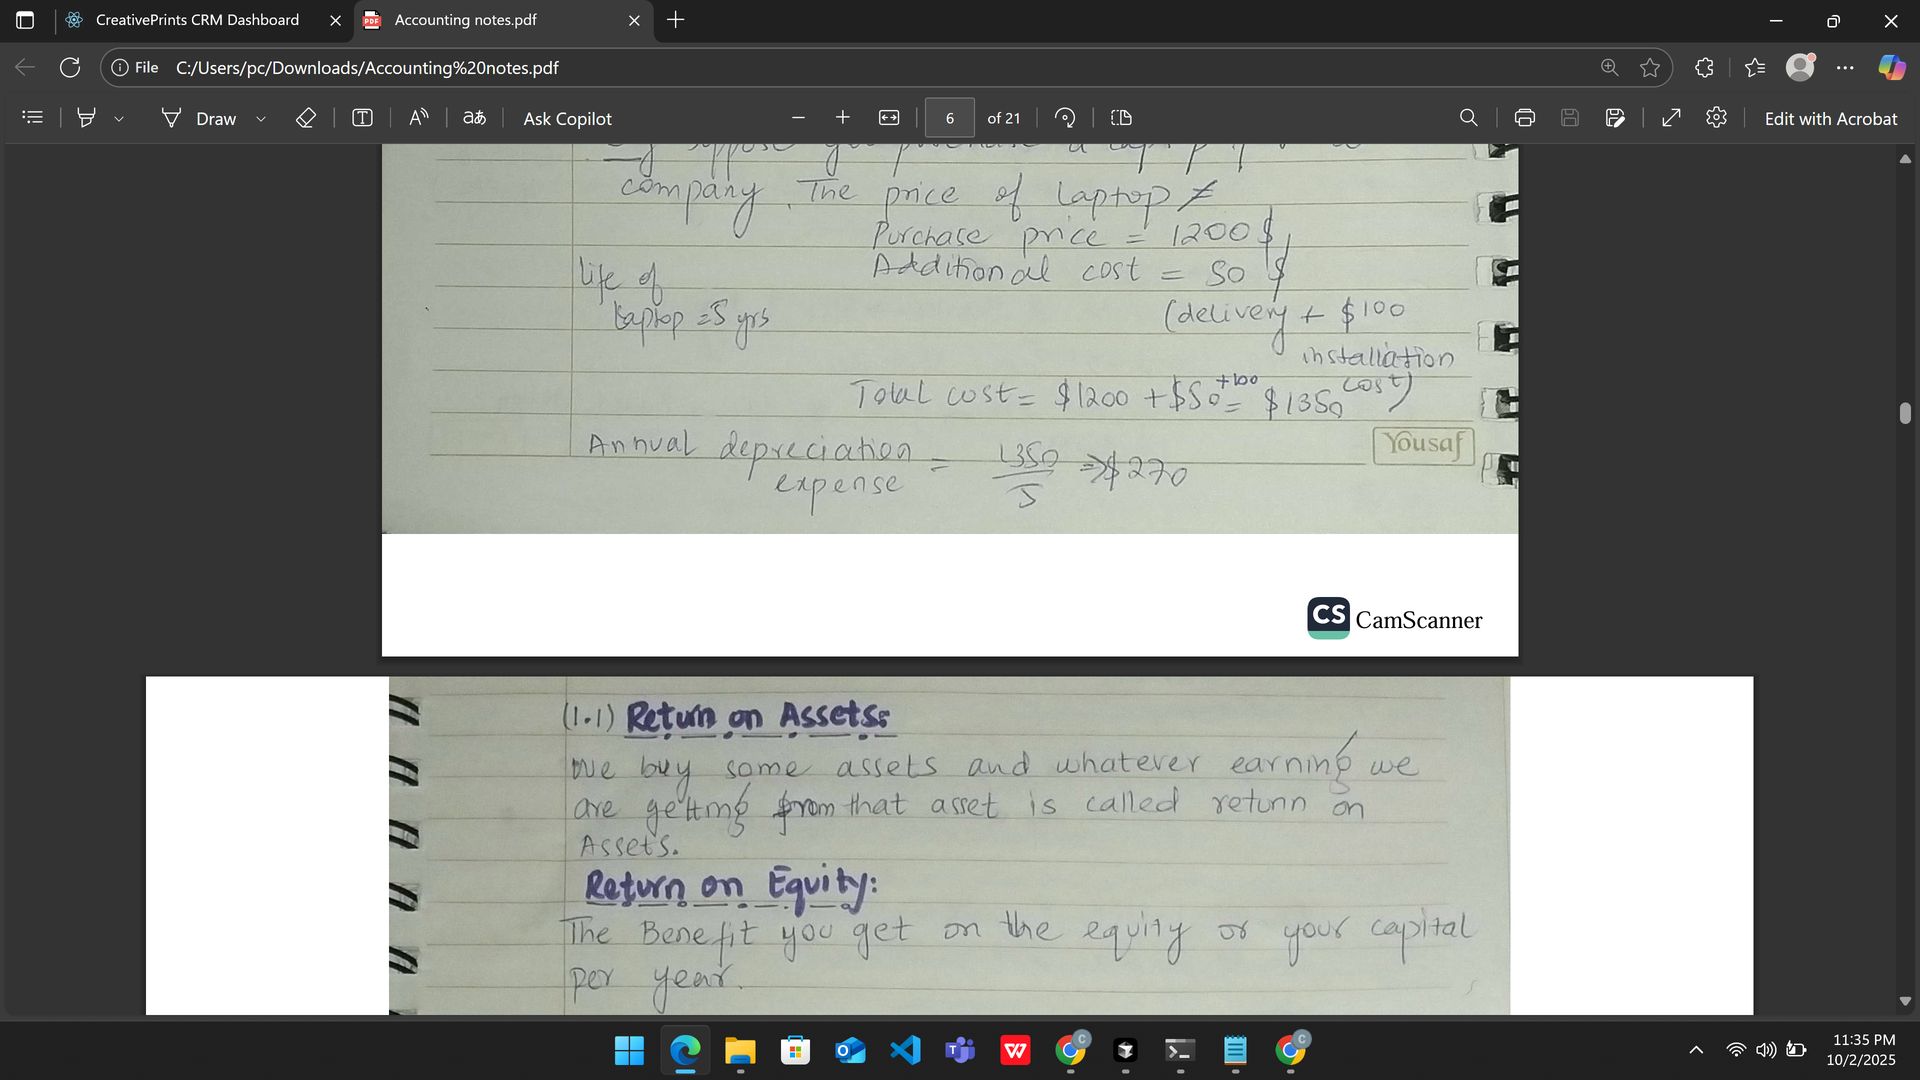 CreativePrints CRM Dashboard
Accounting notes.pdf
File C:/Users/pc/Downloads/Accounting%20notes.pdf
Draw
aあ
Ask Copilot
6 of 21
Edit with Acrobat
suppose you purchase a laptop
company. The price of Laptop
Purchase price = 1200 $
Additional cost = 50 $
life of
Laptop = 5 yrs
(delivery + $100
installation
cost)
Total cost = $1200 + $50 +100 = $1350
Yousaf
Annual depreciation expense = 1350 / 5 => $270
CS CamScanner
(1.1) Return on Assets:
We buy some assets and whatever earning we
are getting from that asset is called return on
Assets.
Return on Equity:
The Benefit you get on the equity or your capital
per year.
11:35 PM
10/2/2025